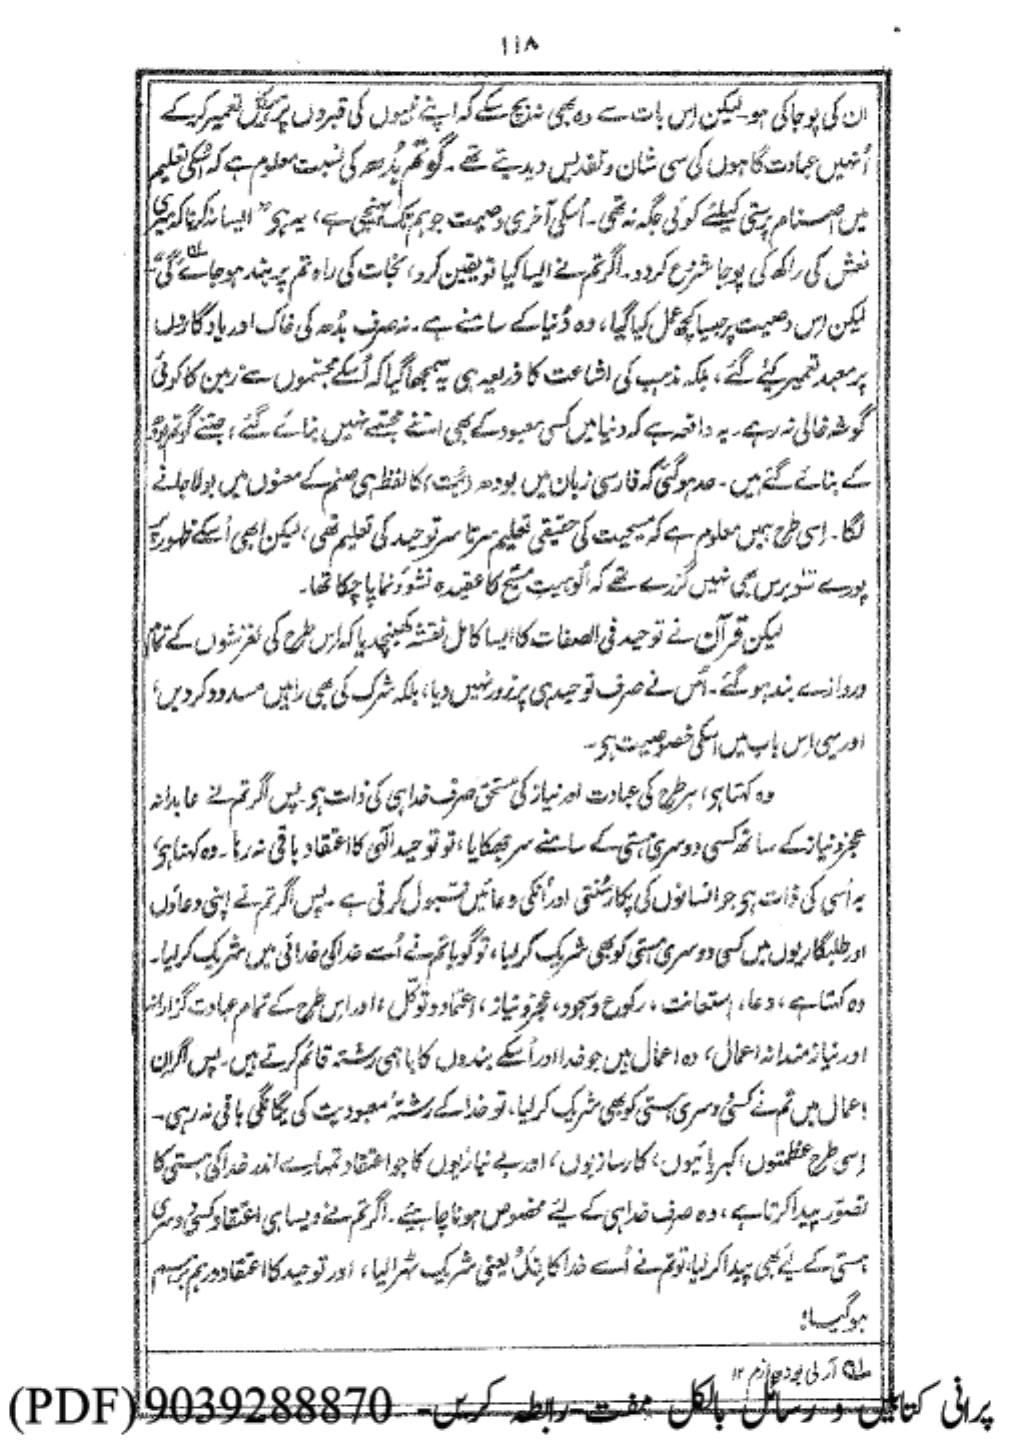 ۱۱۸
ان کی پوجا کی ہو۔ لیکن اِس بات سے وہ بھی نہ بچ سکے کہ اپنے نبیوں کی قبروں پر ہیکل تعمیر کر کے
اُنہیں عبادت گاہوں کی سی شان و تقدیس دیدیتے تھے۔ گوتم بُدھ کی نسبت معلوم ہے کہ اُسکی تعلیم
میں اصنام پرستی کیلئے کوئی جگہ نہ تھی۔ اُسکی آخری وصیت جو ہم تک پہنچی ہے، یہ ہو "ایسا نہ کرنا کہ میری
نعش کی راکھ کی پوجا شروع کر دو۔ اگر تم نے ایسا کیا تو یقین کرو، نجات کی راہ تم پر بند ہو جائے گی"ؔلہ
لیکن اِس وصیت پر جیسا کچھ عمل کیا گیا، وہ دُنیا کے سامنے ہے۔ نہ صرف بُدھ کی خاک اور یادگاروں
پر معبد تعمیر کئے گئے، بلکہ مذہب کی اشاعت کا ذریعہ ہی یہ سمجھا گیا کہ اُسکے مجسموں سے زمین کا کوئی
گوشہ خالی نہ رہے۔ یہ واقعہ ہے کہ دنیا میں کسی معبود کے بھی اتنے مجسمے نہیں بنائے گئے، جتنے گوتم بُدھ
کے بنائے گئے ہیں۔ حد ہو گئی کہ فارسی زبان میں بودھ (بُت) کا لفظ ہی صنم کے معنوں میں بولا جانے
لگا۔ اِسی طرح ہمیں معلوم ہے کہ مسیحیت کی حقیقی تعلیم سر تا سر توحید کی تعلیم تھی، لیکن ابھی اُسکے ظہور پر
پورے سَو برس بھی نہیں گزرے تھے کہ الوہیتِ مسیح کا عقیدہ نشو و نما پا چکا تھا۔
لیکن قرآن نے توحید فی الصفات کا ایسا کامل نقشہ کھینچدیا کہ اِس طرح کی لغزشوں کے تمام
دروازے بند ہو گئے۔ اُس نے صرف توحید ہی پر زور نہیں دیا، بلکہ شرک کی بھی راہیں مسدود کر دیں،
اور یہی اِس باب میں اسکی خصوصیت ہو۔
وہ کہتا ہو، ہر طرح کی عبادت اور نیاز کی مستحق صرف خدا ہی کی ذات ہو پس اگر تم نے عابدانہ
عجز و نیاز کے ساتھ کسی دوسری ہستی کے سامنے سر جھکایا، تو توحیدِ الٰہی کا اعتقاد باقی نہ رہا۔ وہ کہتا ہو،
یہ اُسی کی ذات ہو جو انسانوں کی پکار سُنتی اور اُنکی دعائیں قبول کرتی ہے۔ پس اگر تم نے اپنی دعاؤں
اور طلبگاریوں میں کسی دوسری ہستی کو بھی شریک کر لیا، تو گویا تم نے اُسے خدا کی خدائی میں شریک کر لیا۔
وہ کہتا ہے، دعا، استعانت، رکوع و سجود، عجز و نیاز، اعتماد و توکّل، اور اس طرح کے تمام عبادت گزارانہ
اور نیازمندانہ اعمال، وہ اعمال ہیں جو خدا اور اُسکے بندوں کا باہمی رشتہ قائم کرتے ہیں۔ پس اگر اِن
اعمال میں تم نے کسی دوسری ہستی کو بھی شریک کر لیا، تو خدا کے رشتۂ معبودیت کی یگانگی باقی نہ رہی۔
اِسی طرح عظمتوں، کبریائیوں، کارسازیوں، اور بے نیازیوں کا جو اعتقاد تمہارے اندر خدا کی ہستی کا
تصوّر پیدا کرتا ہے، وہ صرف خدا ہی کے لئے مخصوص ہونا چاہئیے۔ اگر تم نے ویسا ہی اعتقاد کسی دوسری
ہستی کے لئے بھی پیدا کر لیا، تو تم نے اُسے خدا کا نِدّ یعنی شریک ٹھرا لیا، اور توحید کا اعتقاد درہم برہم
ہو گیا!
لہ آرلی بودھ ازم ۱۲
پرانی کتابیں و رسائل بالکل مفت۔ رابطہ کریں۔ 9039288870 (PDF)